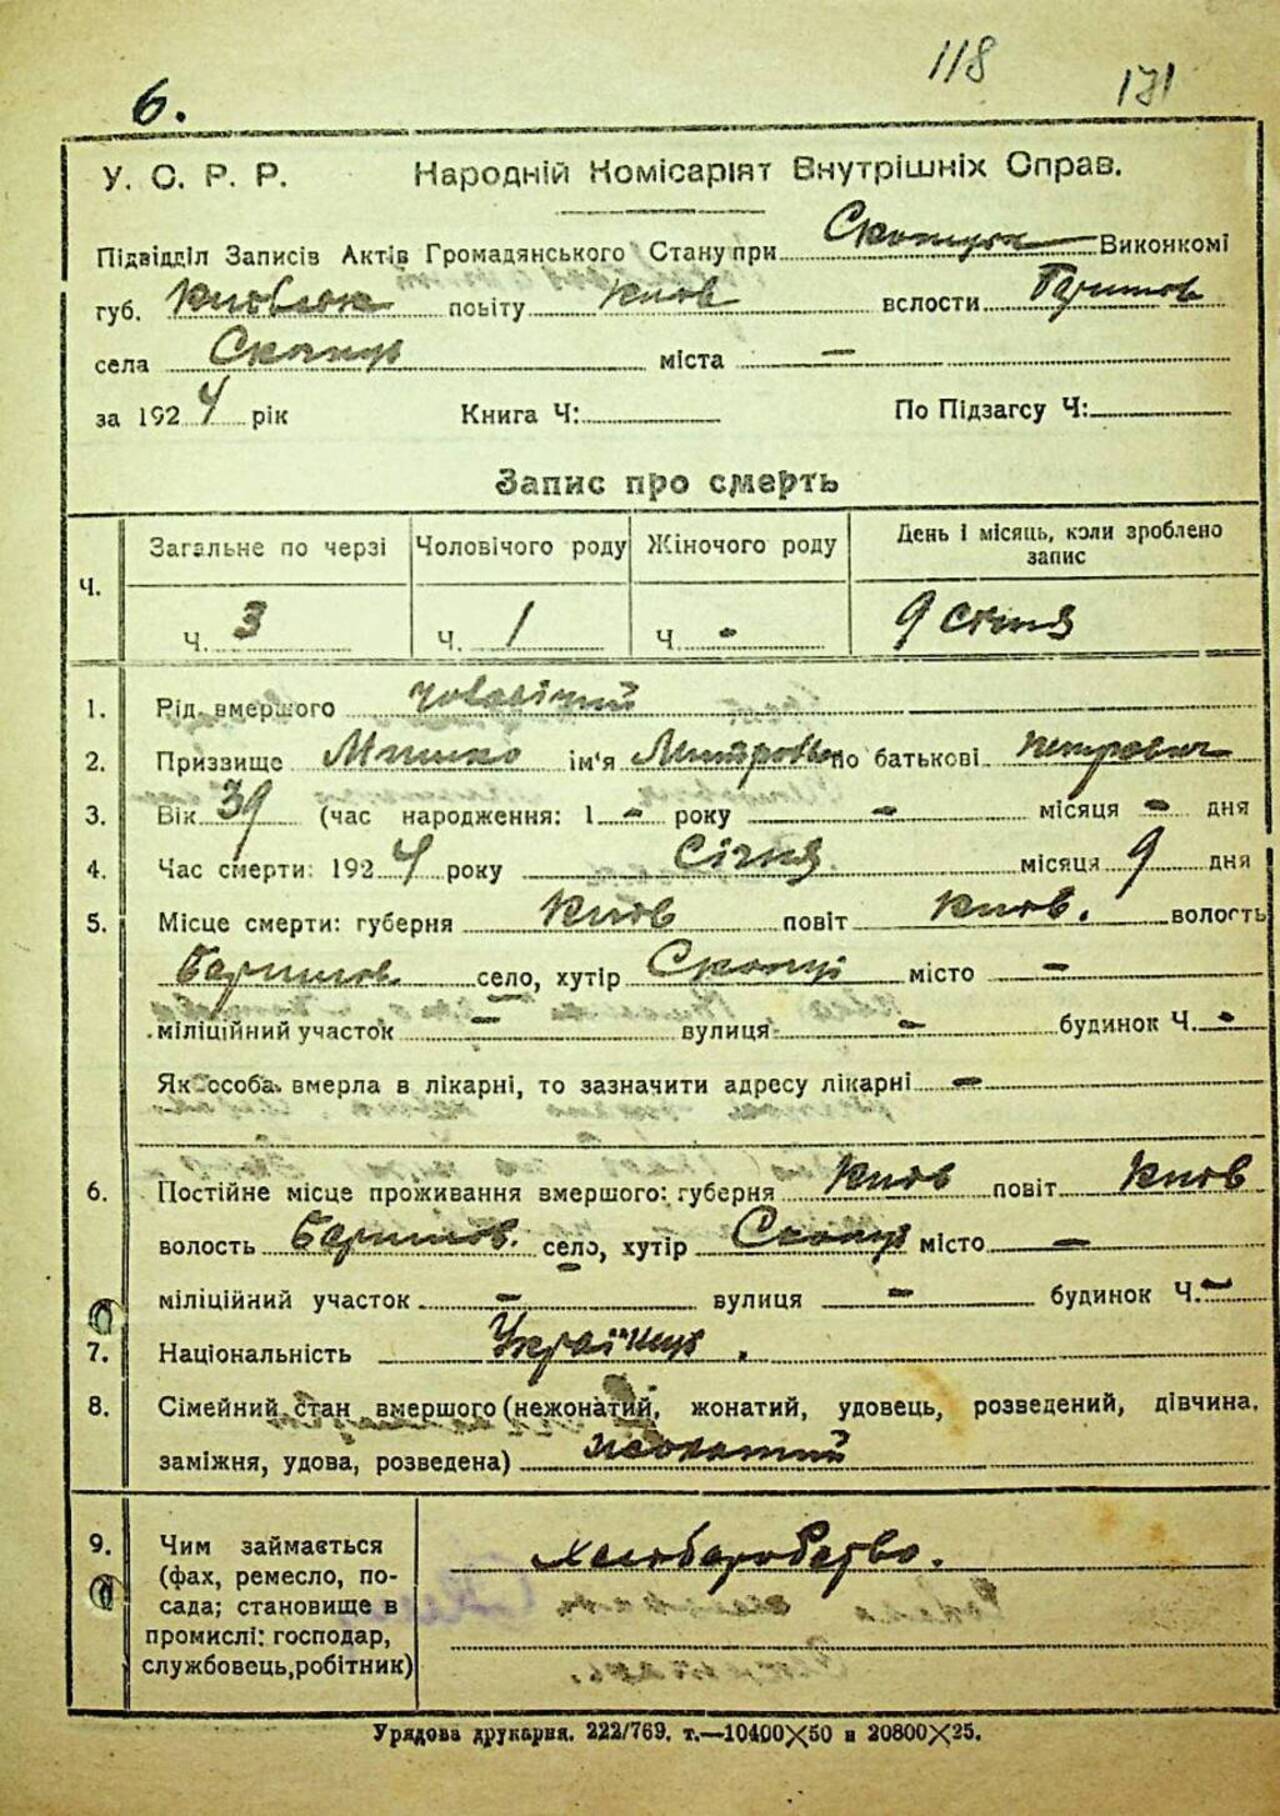 118
131
6.
У. С. Р. Р. Народній Комісаріят Внутрішніх Справ.
Підвідділ Записів Актів Громадянського Стану при Виконкомі
губ. повіту Київ вслости Баришов
села Скопці міста —
за 1924 рік Книга Ч: По Підзагсу Ч:
Запис про смерть
Ч.
Загальне по черзі Чоловічого роду Жіночого роду День і місяць, коли зроблено запис
Ч. 3 Ч. 1 Ч. - 9 січня
1. Рід вмершого чоловічий
2. Призвище ім'я по батькові Петрович
3. Вік 39 (час народження: 1 - року - місяця - дня
4. Час смерти: 1924 року Січня місяця 9 дня
5. Місце смерти: губерня Київ повіт Київ. волость
Баришов село, хутір Скопці місто —
міліційний участок — вулиця - будинок Ч. -
Як особа вмерла в лікарні, то зазначити адресу лікарні —
6. Постійне місце проживання вмершого: губерня Київ повіт Київ
волость Баришов. село, хутір Скопці місто —
міліційний участок — вулиця - будинок Ч. -
7. Національність Українць.
8. Сімейний стан вмершого (нежонатий, жонатий, удовець, розведений, дівчина,
заміжня, удова, розведена) жонатий
9. Чим займається
(фах, ремесло, по-
сада; становище в
промислі: господар,
службовець, робітник)
хліборобство.
Урядова друкарня. 222/769. т.—10400×50 и 20800×25.